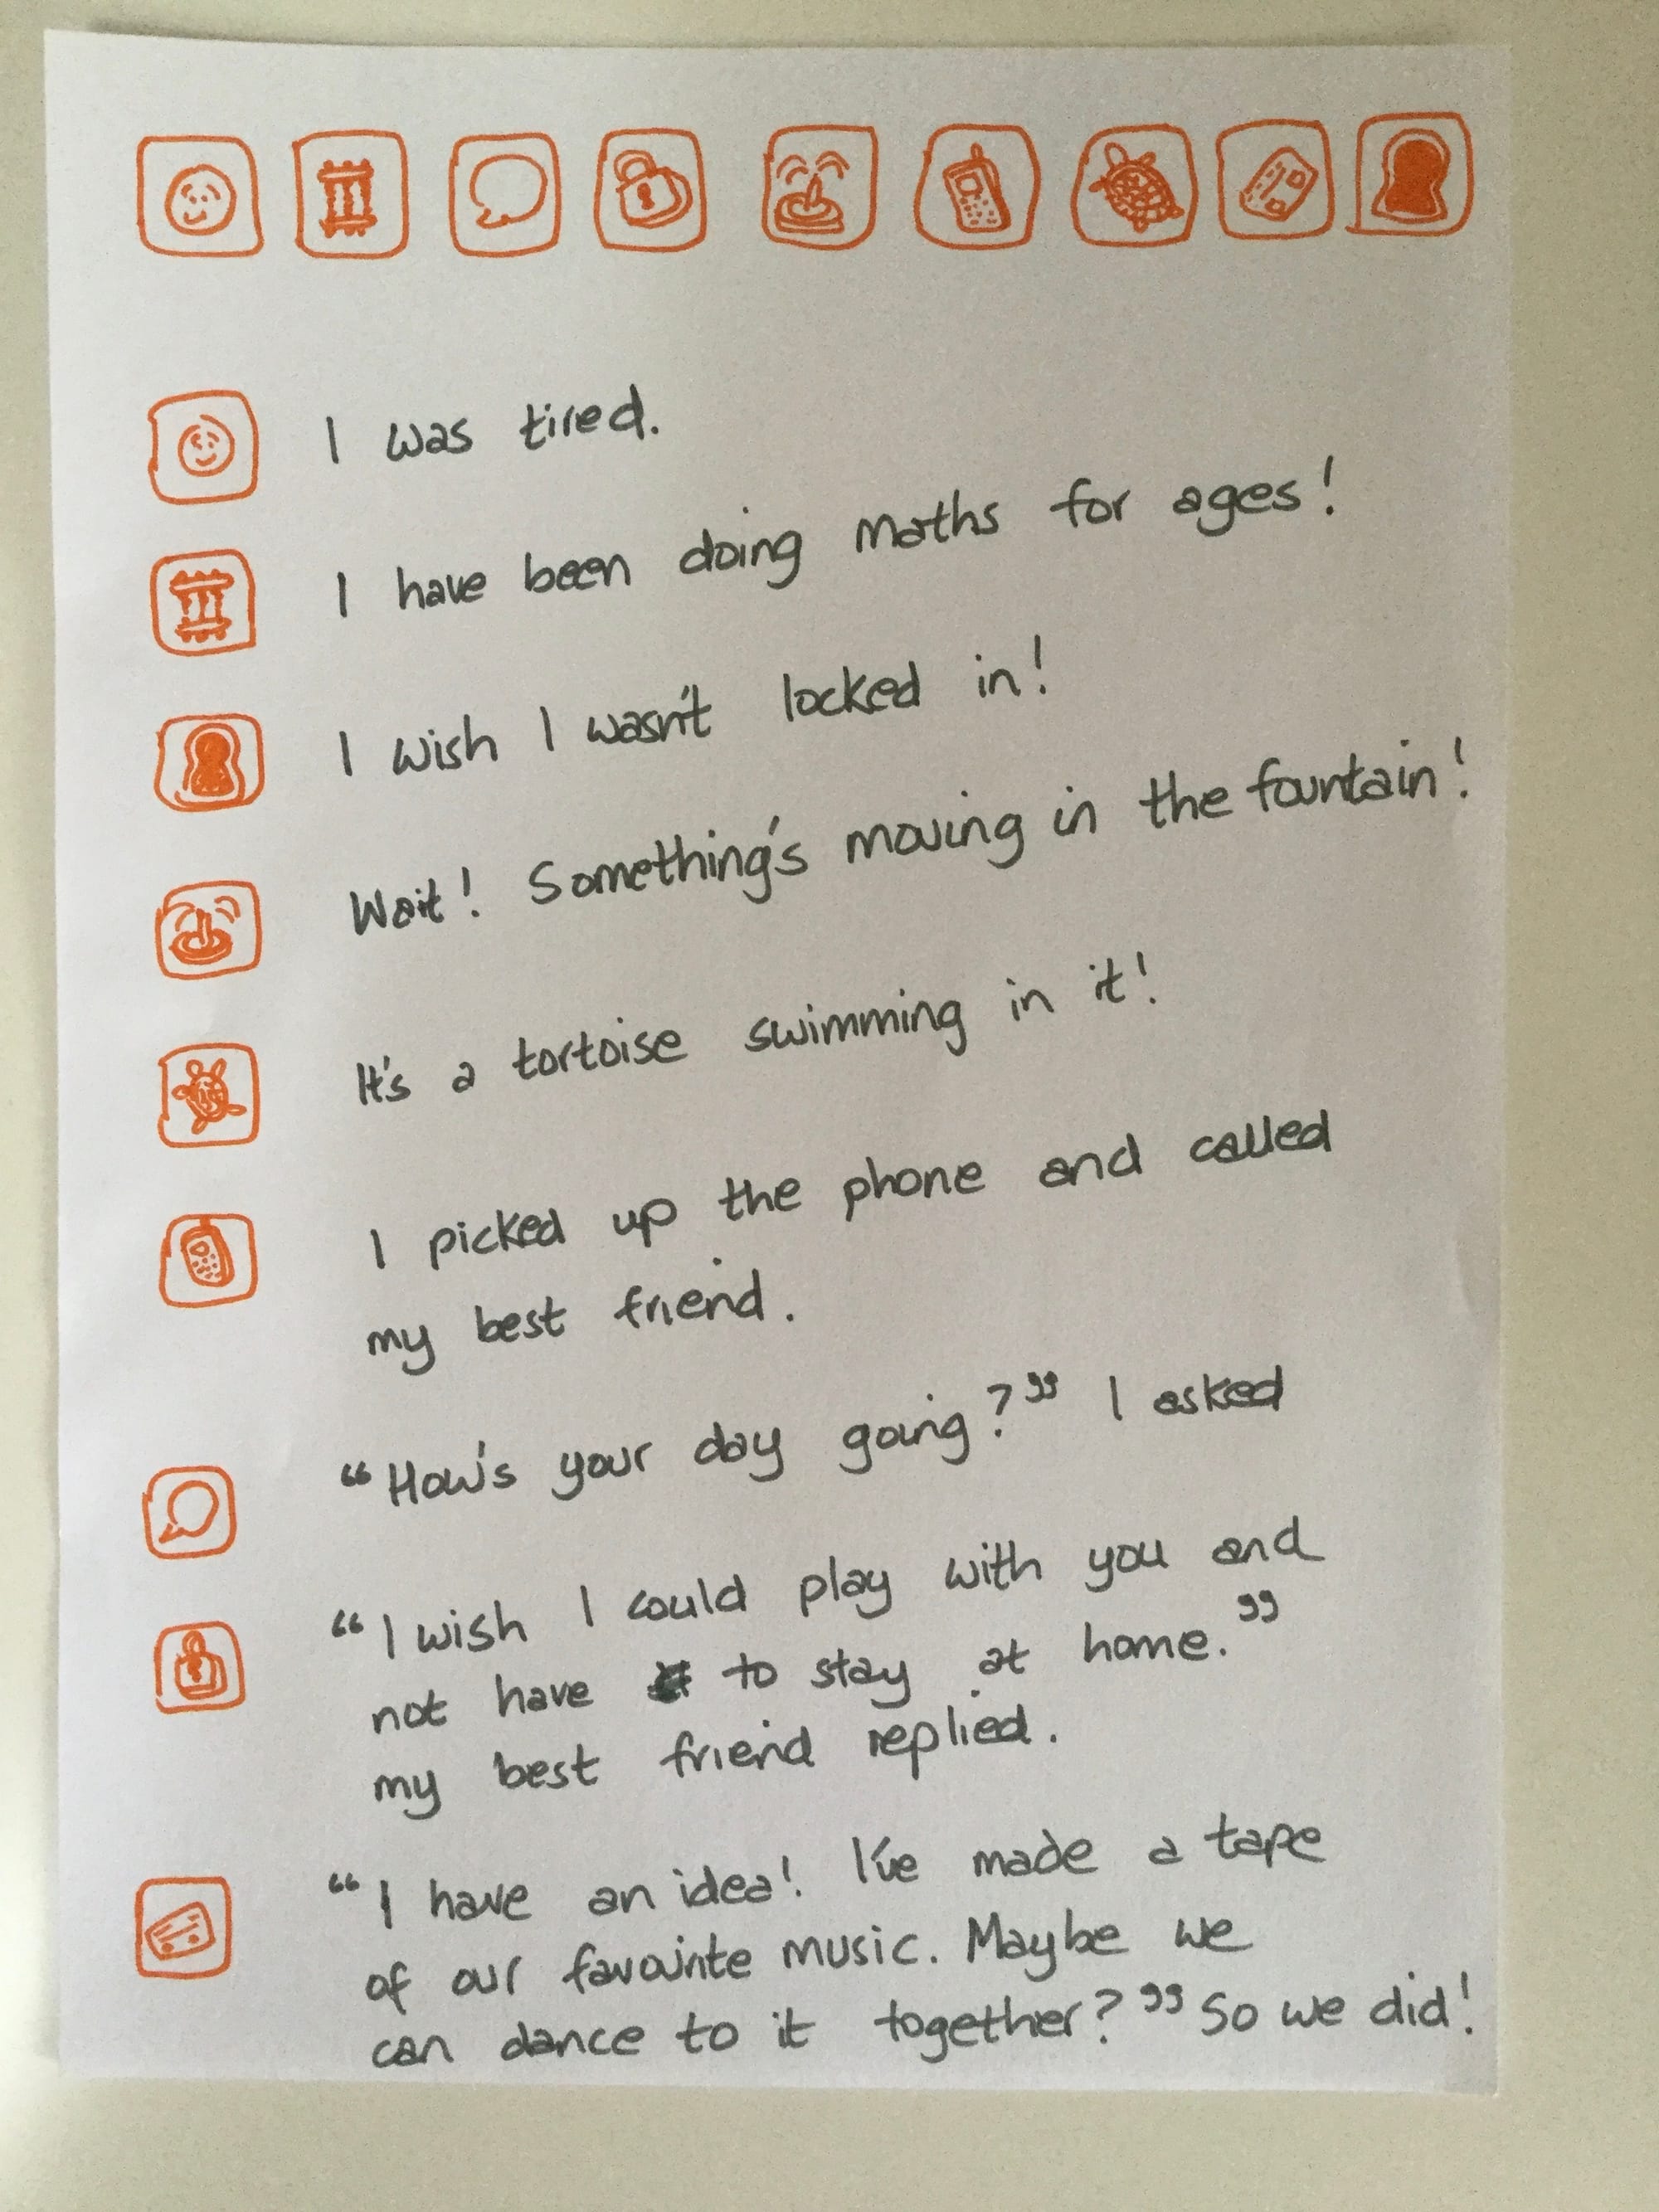 I was tired.
I have been doing maths for ages!
I wish I wasn't locked in!
Wait! Something's moving in the fountain!
It's a tortoise swimming in it!
I picked up the phone and called
my best friend.
"How's your day going?" I asked
"I wish I could play with you and
not have to stay at home."
my best friend replied.
"I have an idea! I've made a tape
of our favourite music. Maybe we
can dance to it together?" So we did!